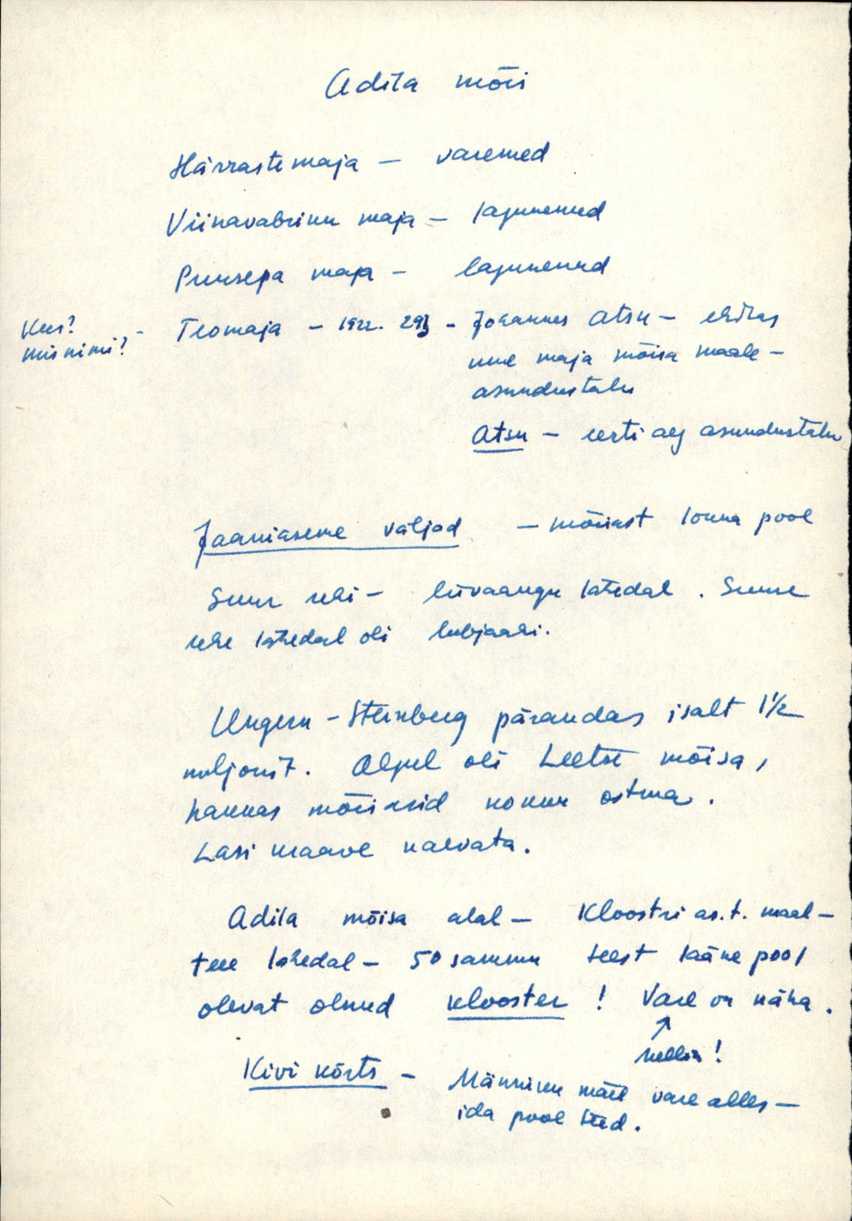 Adila mõis
Härrastemaja – varemed
Viinavabriku maja – lagunenud
Puusepa maja – lagunenud
Kus?
mis nimi?
Teomaja – 1922. – Johannes Atsu – ehitas
uue maja mõisa maale –
asundustalu
Atsu – eesti aeg asundustalu
Jaaniaseme väljad – mõisast lõuna pool
Suur rehi – liivaaugu lähedal. Suure
rehe lähedal oli lubjaahi.
Ungern-Sternberg pärandas isalt 1½
miljonit. Algul oli Leetse mõisa,
hakkas mõisasid kokku ostma.
Lasi kraave kaevata.
Adila mõisa alal – Kloostri as.t. maal –
tee lähedal – 50 sammu teest lääne pool
olevat olnud klooster! Vare on näha.
↑
Kivi kõrts – Männiku mäel vare alles –
ida pool teed.